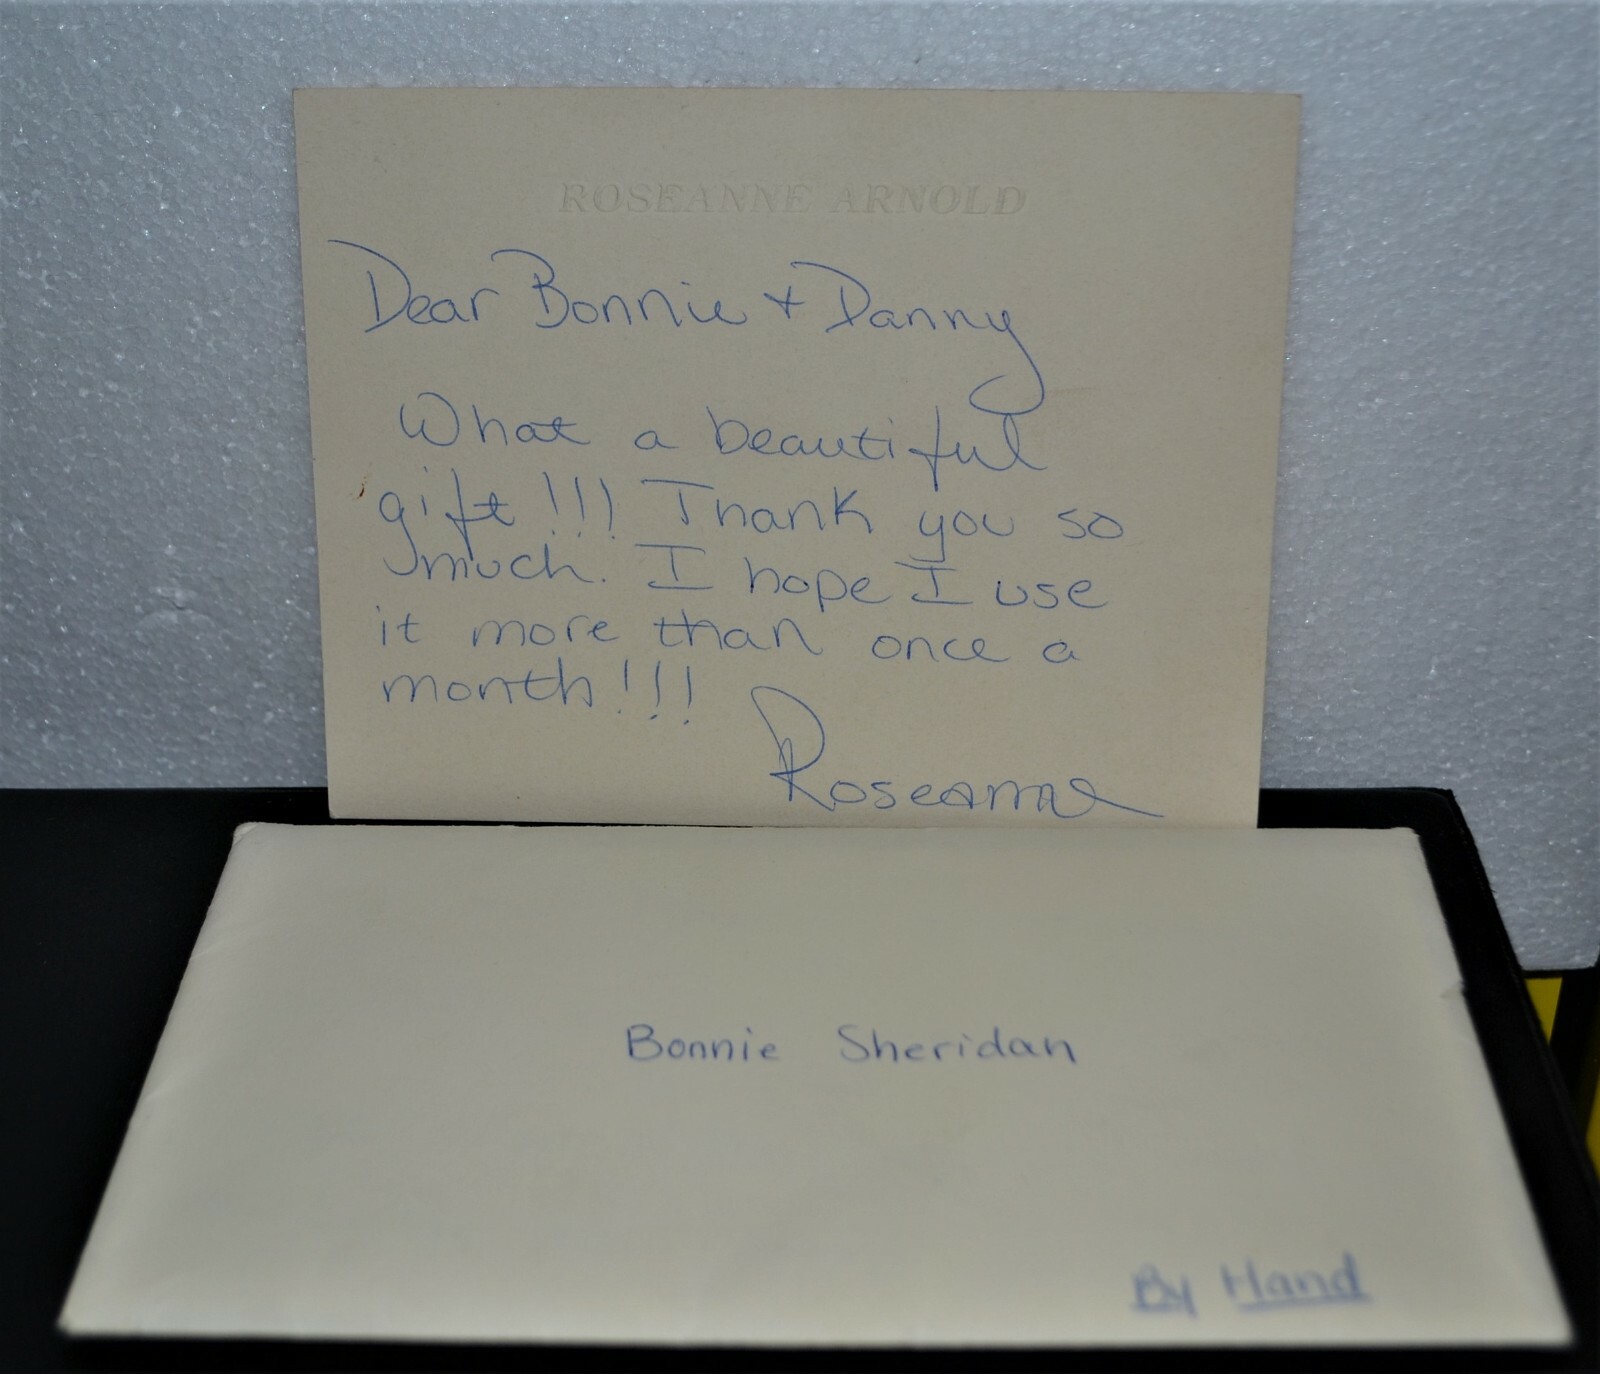 ROSEANNE ARNOLD
Dear Bonnie + Danny
What a beautiful
gift!!! Thank you so
much. I hope I use
it more than once a
month!!!
Roseanne
Bonnie Sheridan
By Hand